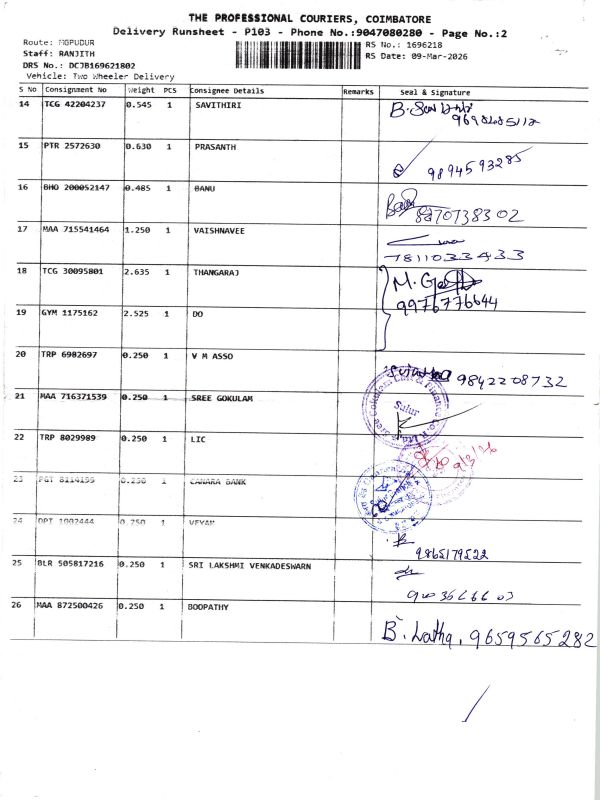 THE PROFESSIONAL COURIERS, COIMBATORE
Delivery Runsheet - P103 - Phone No.:9047080280 - Page No.:2
Route: MGPUDUR
RS No.: 1696218
Staff: RANJITH
RS Date: 09-Mar-2026
DRS No.: DCJB169621802
Vehicle: Two Wheeler Delivery
S No Consignment No Weight PCS Consignee Details Remarks Seal & Signature
14 TCG 42204237 0.545 1 SAVITHIRI
15 PTR 2572630 0.630 1 PRASANTH 9894593285
16 BHO 200052147 0.485 1 BANU 8870738302
17 MAA 715541464 1.250 1 VAISHNAVEE 7811033433
18 TCG 30095801 2.635 1 THANGARAJ M. 9976776644
19 GYM 1175162 2.525 1 DO
20 TRP 6982697 0.250 1 V M ASSO 9842208732
21 MAA 716371539 0.250 1 SREE GOKULAM
Sulur
22 TRP 8029989 0.250 1 LIC 9/3/26
23 PGT 8114199 0.250 1 CANARA BANK
24 DPI 1002444 0.250 1 VEYAN 9865179522
25 BLR 505817216 0.250 1 SRI LAKSHMI VENKADESWARN
26 MAA 872500426 0.250 1 BOOPATHY B. Latha, 9659565282